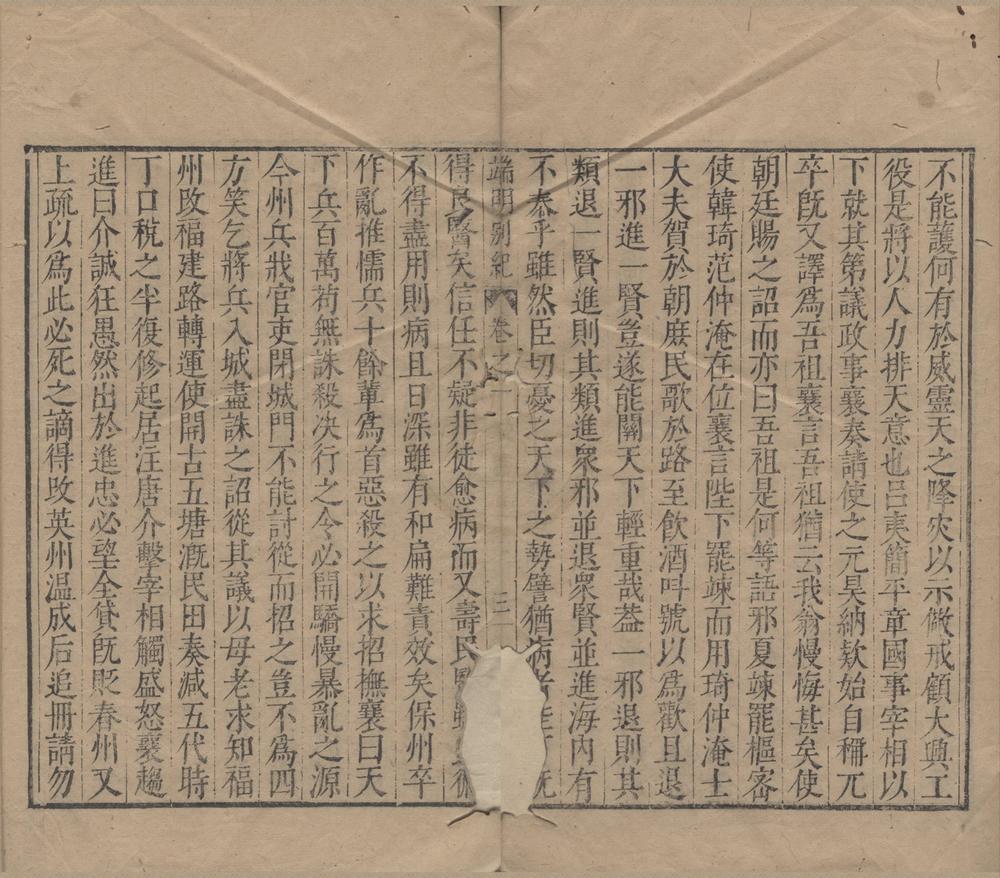 不能護何有於威靈天之降灾以示儆戒顧大興工
役是將以人力排天意也吕夷簡平章國事宰相以
下就其第議政事襄奏請使之元昊納欵始自稱兀
卒旣又譯爲吾祖襄言吾祖猶云我翁慢悔甚矣使
朝廷賜之詔而亦曰吾祖是何等語邪夏竦罷樞宻
使韓琦范仲淹在位襄言陛下罷竦而用琦仲淹士
大夫賀於朝庶民歌於路至飲酒呌號以爲歡且退
一邪進一賢豈遂能關天下輕重哉葢一邪退則其
類退一賢進則其類進衆邪並退衆賢並進海内有
不泰乎雖然臣切憂之天下之勢譬猶病者旣
端明别紀 卷之一 三
得良醫矣信任不疑非徒愈病而又壽民醫雖
不得盡用則病且日深雖有和扁難責效矣保州卒
作亂推懦兵十餘輩爲首惡殺之以求招撫襄曰天
下兵百萬苟無誅殺决行之令必開驕慢暴亂之源
今州兵戕官吏閉城門不能討從而招之豈不爲四
方笑乞將兵入城盡誅之詔從其議以母老求知福
州攺福建路轉運使開古五塘漑民田奏减五代時
丁口稅之半復修起居注唐介擊宰相觸盛怒襄趨
進曰介誠狂愚然出於進忠必望全貸旣貶春州又
上疏以爲此必死之謫得攺英州温成后追冊請勿